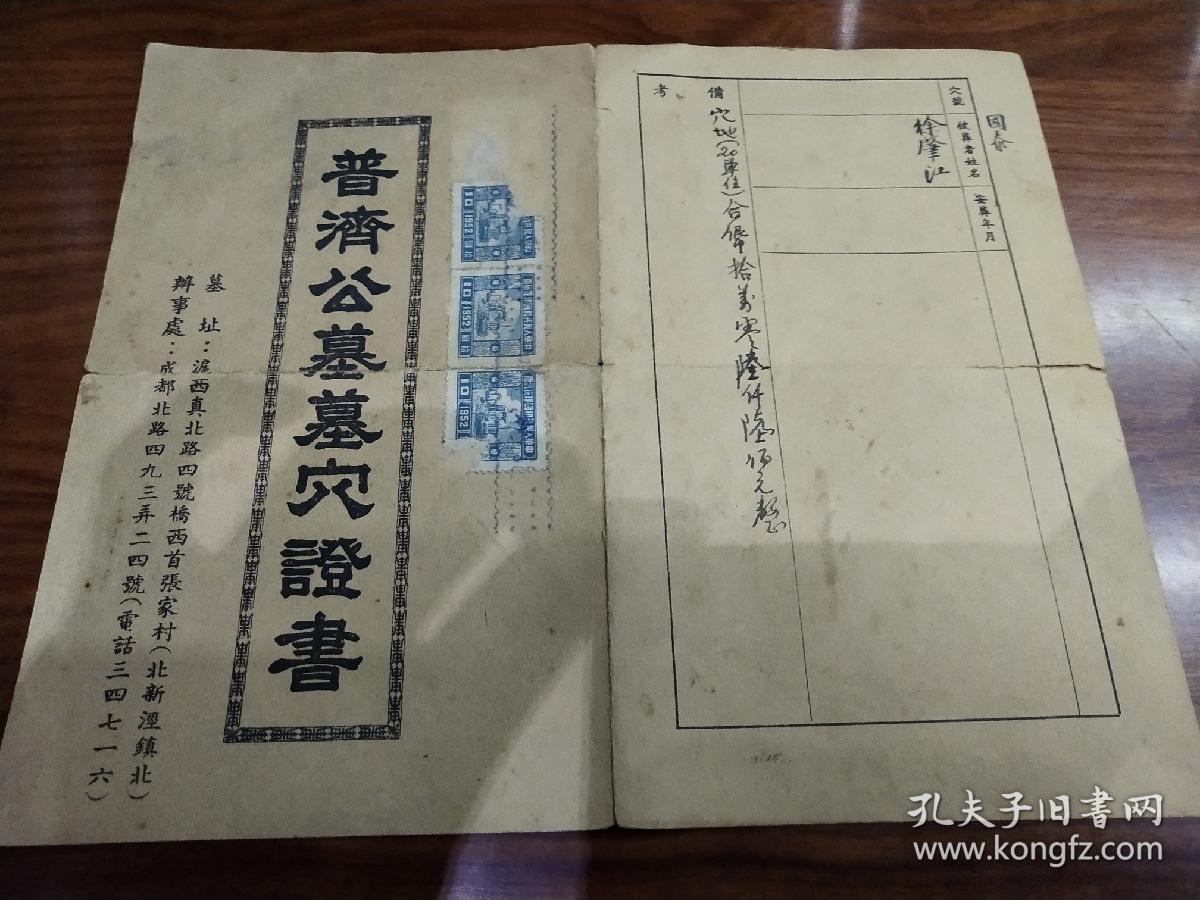 普濟公墓墓穴證書
墓址：滬西真北路四號橋西首張家村（北新涇鎮北）
辦事處：成都北路四九三弄二四號（電話三四七一六）
10 1952
10 1952
10 1952
國泰
穴號 被葬者姓名 安葬年月
徐肇江
備考
穴地（20單位）合僻拾萬零陸仟陸佰元整
孔夫子旧书网
www.kongfz.com